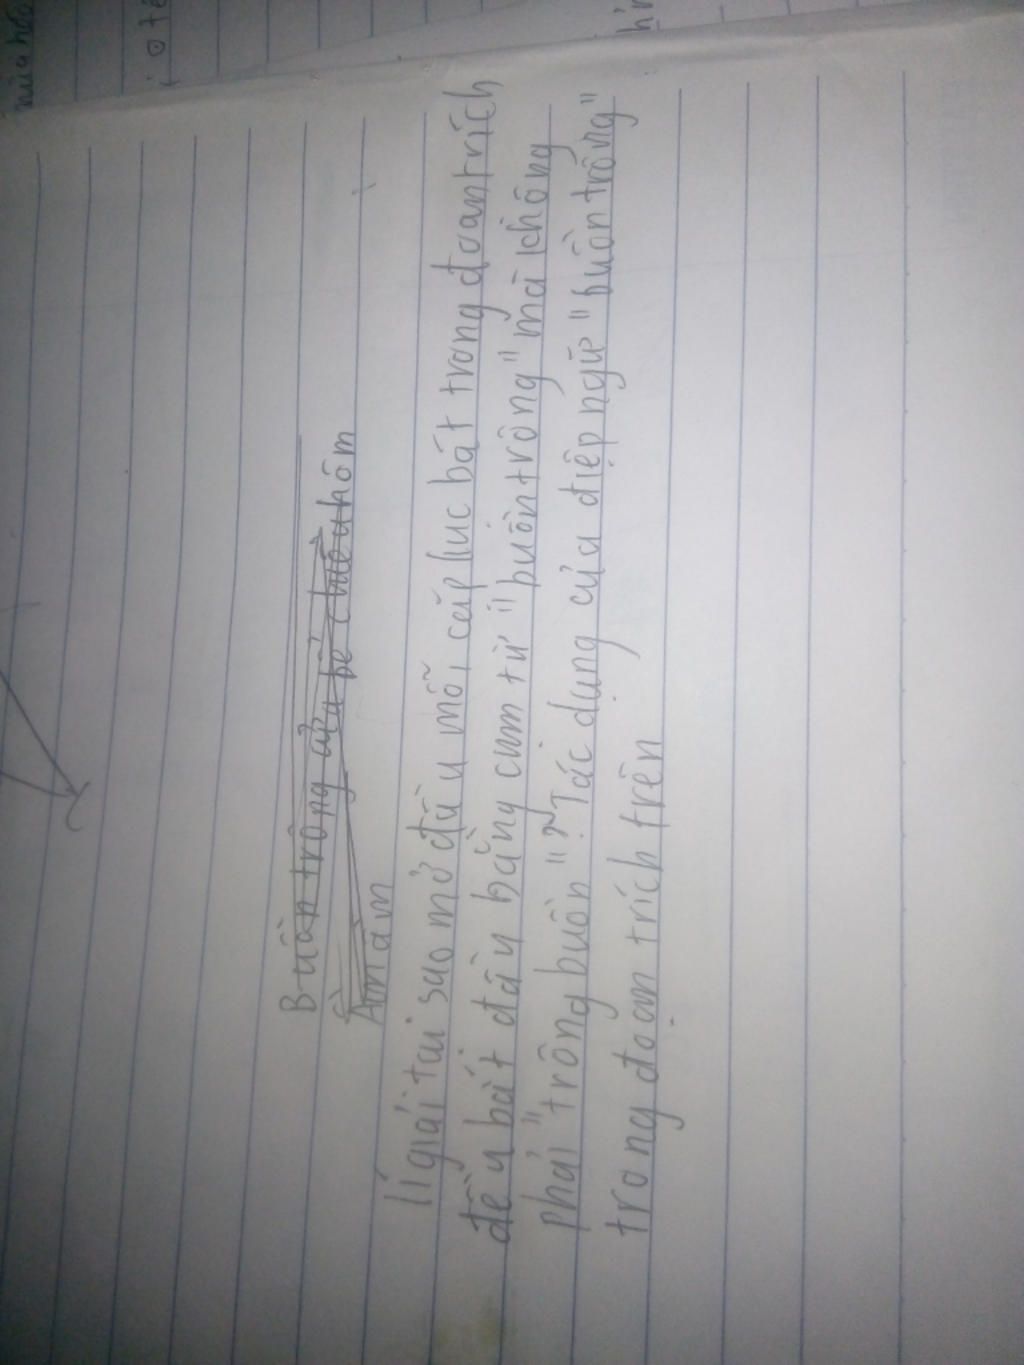 Buồn trông cửa bể chiều hôm
Ầm ầm
lí giải tai sao mở đầu mỗi cặp lục bát trong đoạn trích
đều bắt đầu bằng cụm từ "buồn trông" mà không
phải "trông buồn"? Tác dụng của điệp ngữ "buồn trông"
trong đoạn trích trên